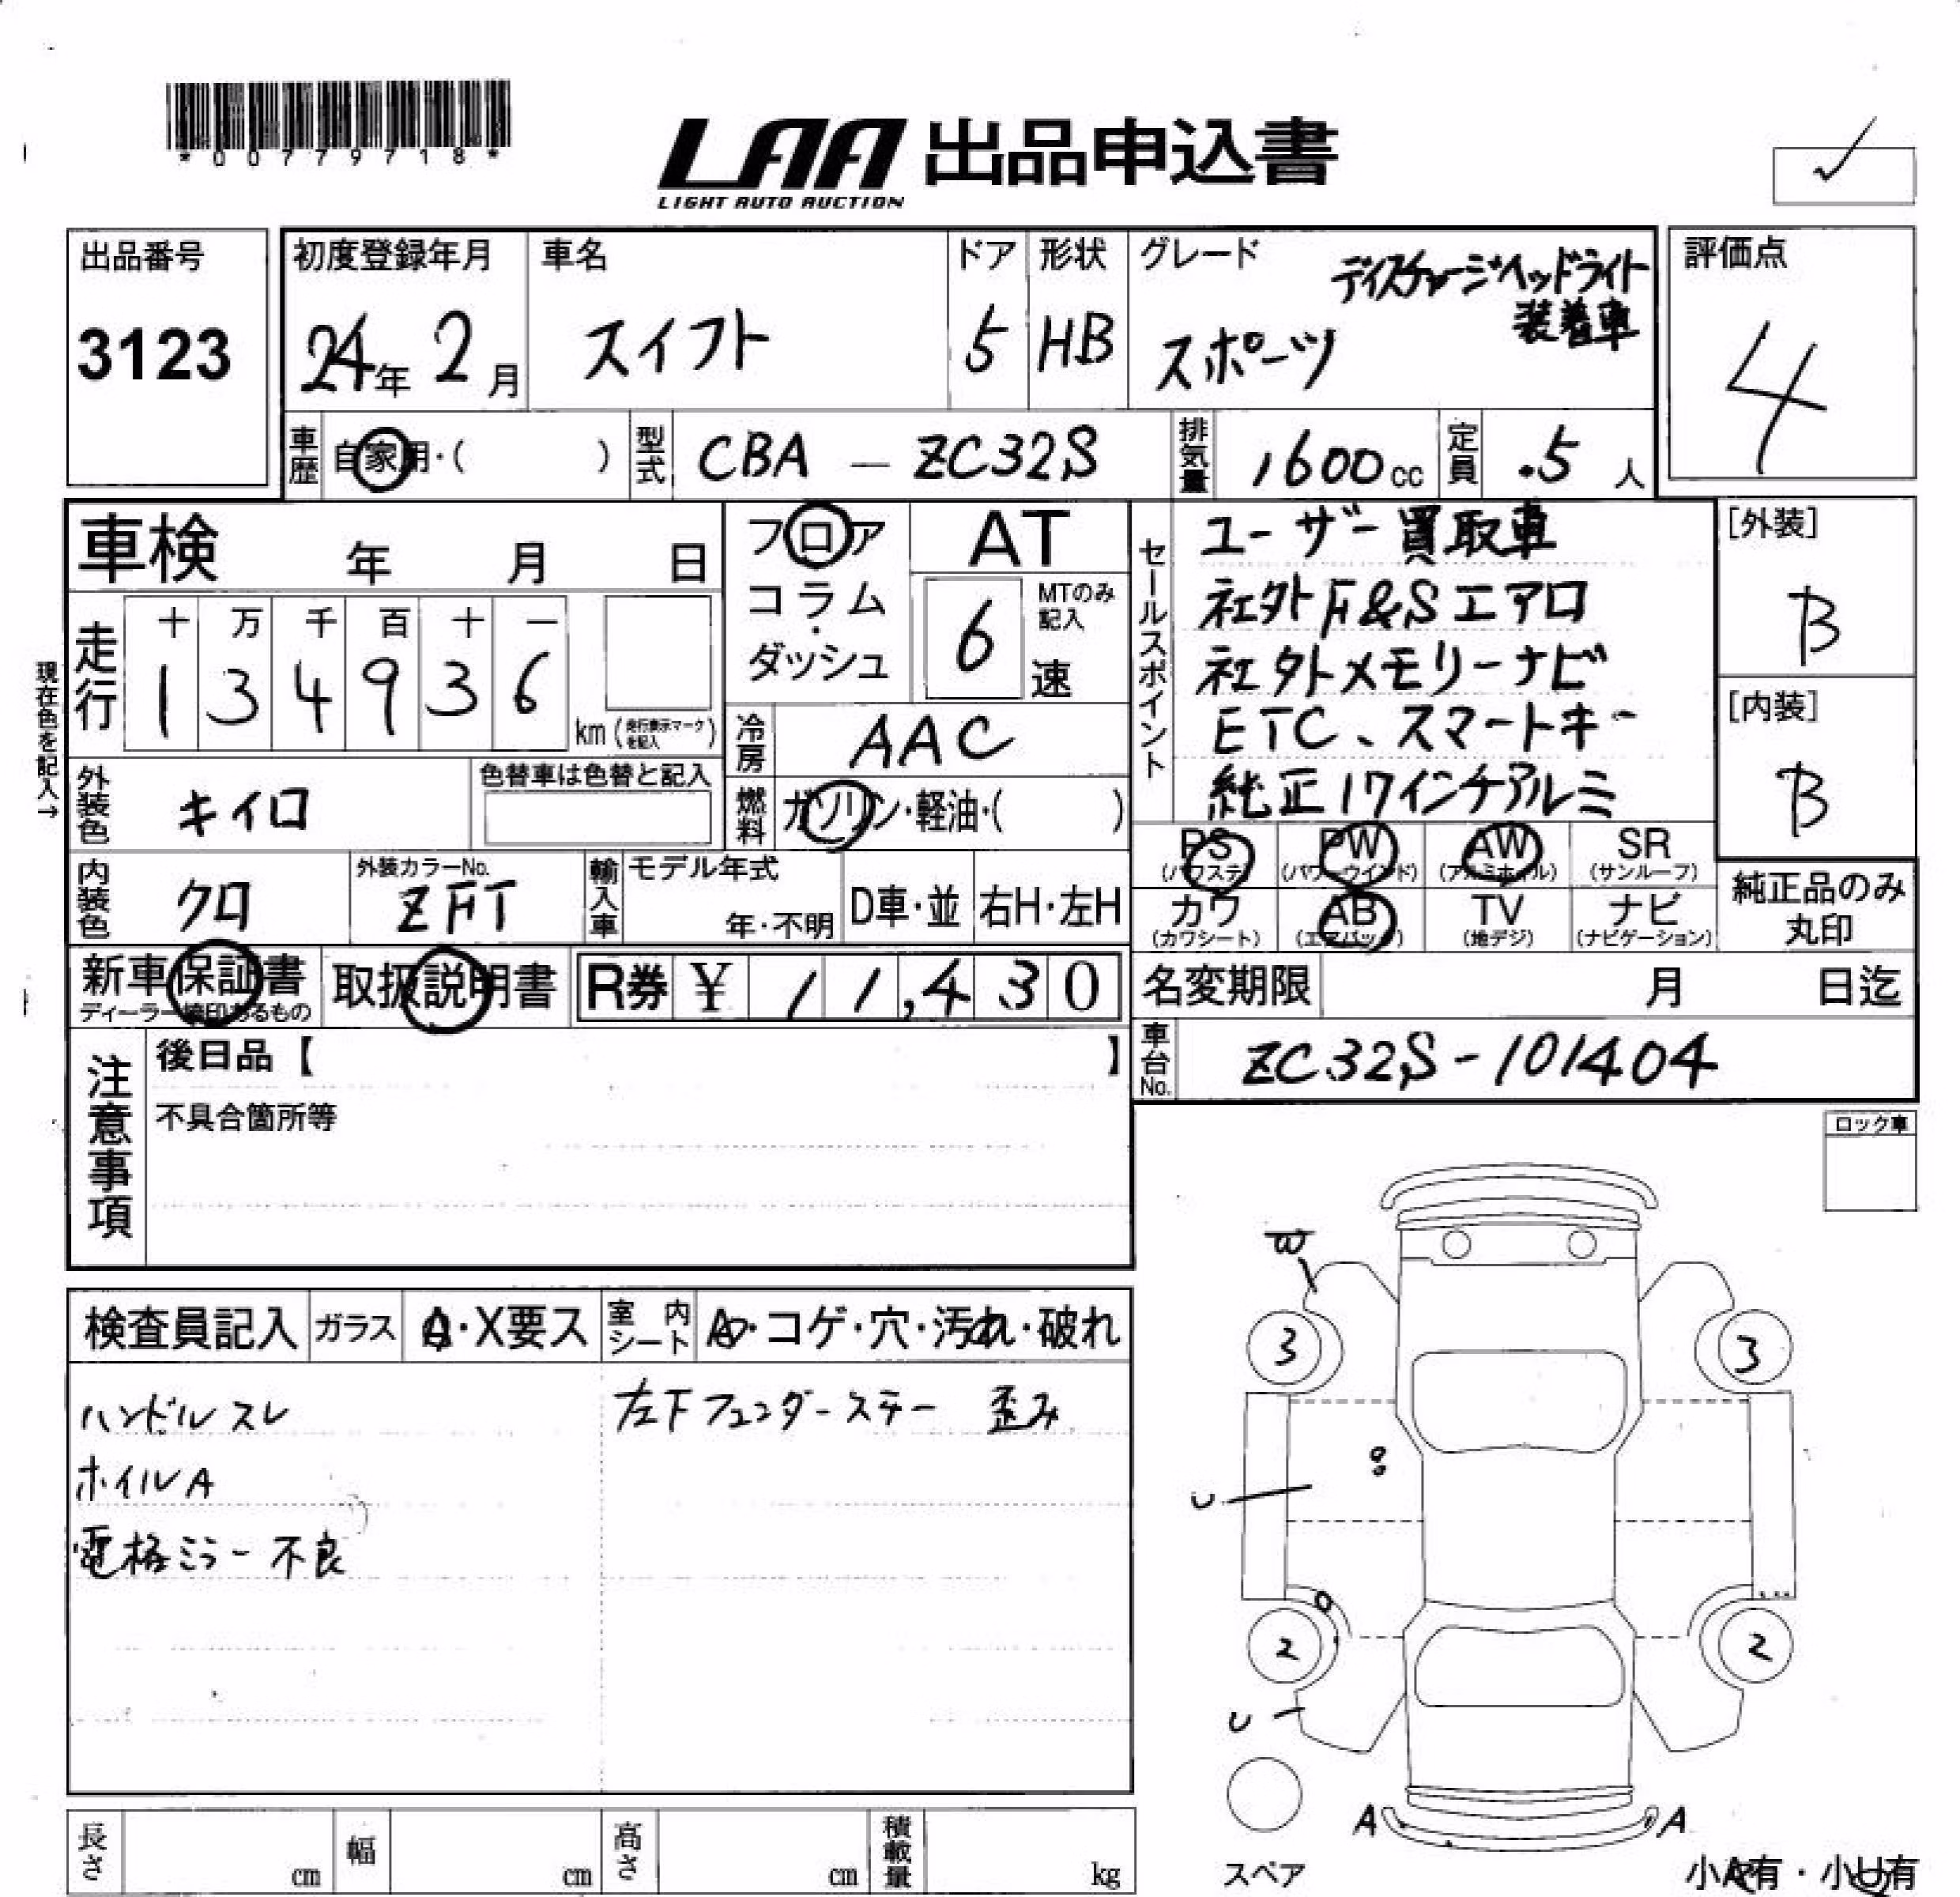 *00779718*
LAA 出品申込書
LIGHT AUTO AUCTION
出品番号
3123
初度登録年月
24年 2月
車名
スイフト
ドア
5
形状
HB
グレード
ディスチャージヘッドライト
装着車
スポーツ
評価点
4
車歴 自家用・( )
型式 CBA - ZC32S
排気量 1600cc
定員 5人
車検 年 月 日
走行
十 万 千 百 十 一
1 3 4 9 3 6
km(走行表示マークを記入)
現在色を記入→
フロア
コラム・
ダッシュ
AT
6 速
MTのみ
記入
冷房 AAC
燃料 ガソリン・軽油・( )
セールスポイント
ユーザー買取車
社外F&Sエアロ
社外メモリーナビ
ETC、スマートキー
純正17インチアルミ
[外装]
B
[内装]
B
外装色 キイロ
色替車は色替と記入
内装色 クロ
外装カラーNo.
ZFT
輸入車
モデル年式
年・不明
D車・並
右H・左H
PS
(パワステ)
PW
(パワーウインド)
AW
(アルミホイル)
SR
(サンルーフ)
カワ
(カワシート)
AB
(エアバッグ)
TV
(地デジ)
ナビ
(ナビゲーション)
純正品のみ
丸印
新車保証書
ディーラー捺印あるもの
取扱説明書
R券 ¥ 11,430
名変期限 月 日迄
車台No. ZC32S-101404
注意事項
後日品【 】
不具合箇所等
ロック車
検査員記入
ガラス A・X要ス
室内シート A・コゲ・穴・汚れ・破れ
ハンドルスレ
ホイルA
電格ミラー不良
左下フェンダーステー 歪み
W
3 3
U
2 2
U
A A
スペア
小A有・小U有
長さ cm
幅 cm
高さ cm
積載量 kg